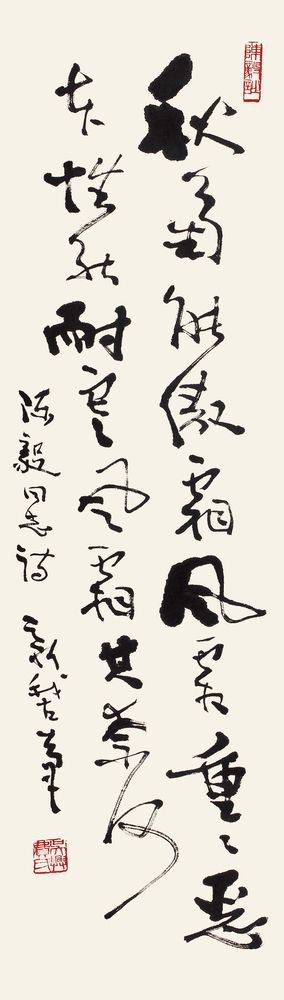 秋菊能傲霜风霜重々恶
本性能耐寒风霜其奈何
陈毅同志诗